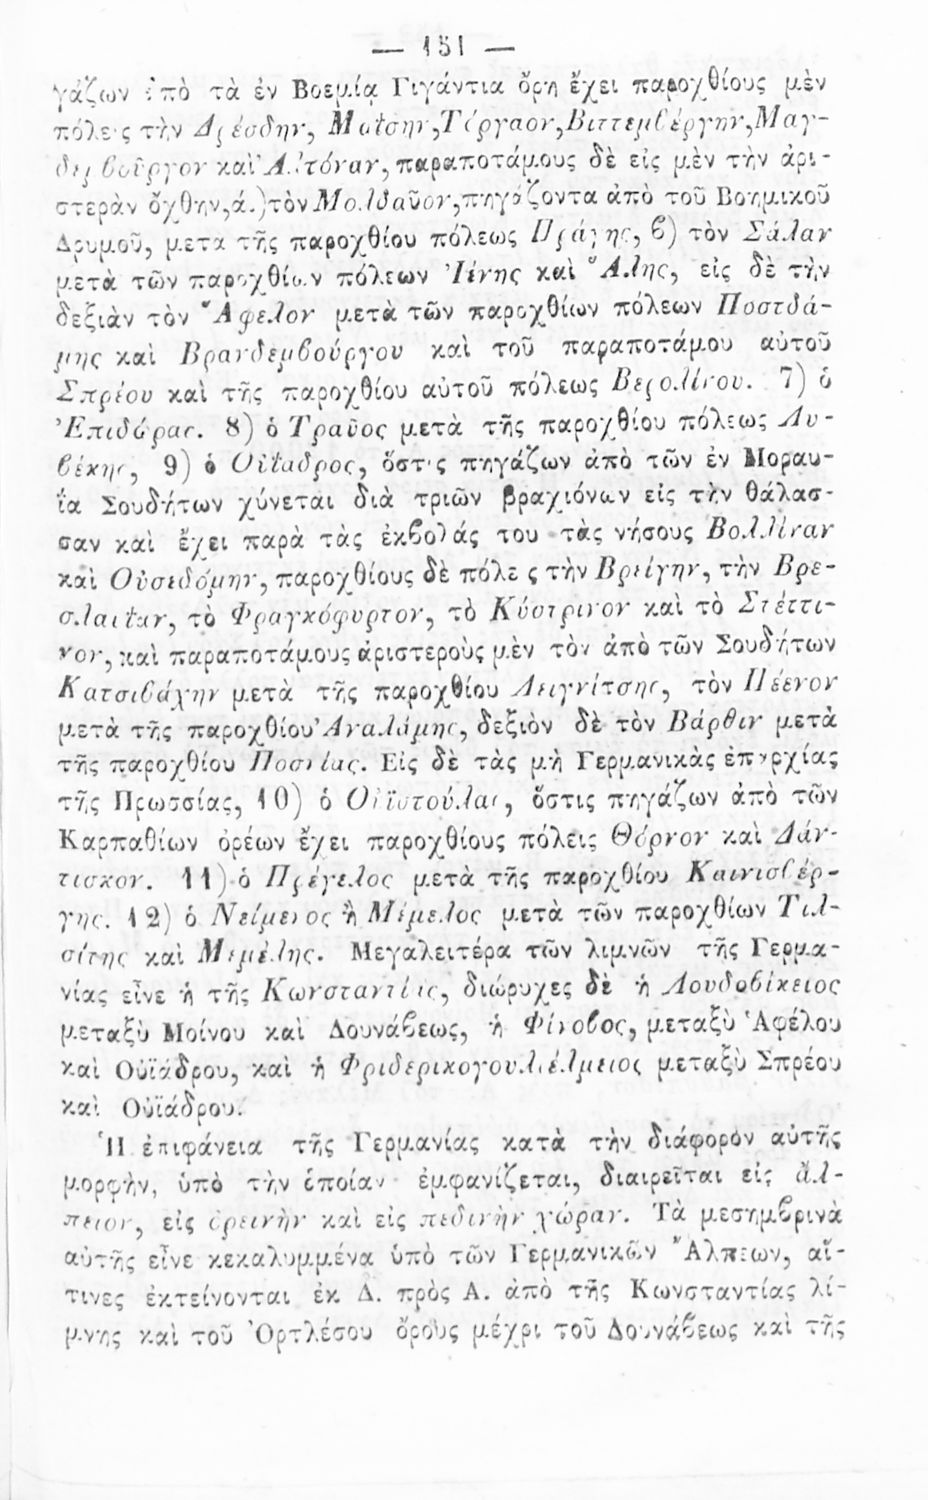 — 151 —
γάζων ἀπὸ τὰ ἐν Βοεμίᾳ Γιγάντια ὄρη ἔχει παροχθίους μὲν
πόλεις τὴν Δρέσδην, Μαΐσην, Τόργαον, Βιττεμβέργην, Μαγ-
δεμβοῦργον καὶ Ἀλτόναν, παραποτάμους δὲ εἰς μὲν τὴν ἀρι-
στερὰν ὄχθην, ά.) τὸν Μολδαῦον, πηγάζοντα ἀπὸ τοῦ Βοημικοῦ
Δρυμοῦ, μετα τῆς παροχθίου πόλεως Πράγης, β) τὸν Σάλαν
μετὰ τῶν παροχθίων πόλεων Ἰένης καὶ Ἅλης, εἰς δὲ τὴν
δεξιὰν τὸν Ἄφελον μετὰ τῶν παροχθίων πόλεων Ποστδά-
μης καὶ Βρανδεμβούργου καὶ τοῦ παραποτάμου αὐτοῦ
Σπρέου καὶ τῆς παροχθίου αὐτοῦ πόλεως Βερολίνου. 7) ὁ
Ἐπιδώρας. 8) ὁ Τραῦος μετὰ τῆς παροχθίου πόλεως Λυ-
βέκης, 9) ὁ Οὐΐαδρος, ὅστις πηγάζων ἀπὸ τῶν ἐν Μοραυ-
ΐα Σουδήτων χύνεται διὰ τριῶν βραχιόνων εἰς τὴν θάλασ-
σαν καὶ ἔχει παρὰ τὰς ἐκβολάς του τὰς νήσους Βολλίναν
καὶ Οὐσεδόμην, παροχθίους δὲ πόλεις τὴν Βρείγην, τὴν Βρε-
σλαυΐαν, τὸ Φραγκόφυρτον, τὸ Κύστρινον καὶ τὸ Στέττι-
νον, καὶ παραποτάμους ἀριστεροὺς μὲν τὸν ἀπὸ τῶν Σουδήτων
Κατσιβάχην μετὰ τῆς παροχθίου Λειγνίτσης, τὸν Πέενον
μετὰ τῆς παροχθίου Ἀναλάμης, δεξιὸν δὲ τὸν Βάρθιν μετὰ
τῆς παροχθίου Ποσνίας. Εἰς δὲ τὰς μὴ Γερμανικὰς ἐπαρχίας
τῆς Πρωσσίας, 10) ὁ Οὐϊστούλας, ὅστις πηγάζων ἀπὸ τῶν
Καρπαθίων ὀρέων ἔχει παροχθίους πόλεις Θόρνον καὶ Δάν-
τισκον. 11) ὁ Πρέγελος μετὰ τῆς παροχθίου Καινισβέρ-
γης. 12) ὁ Νείμενος ἢ Μέμελος μετὰ τῶν παροχθίων Τιλ-
σίτης καὶ Μεμέλης. Μεγαλειτέρα τῶν λιμνῶν τῆς Γερμα-
νίας εἶνε ἡ τῆς Κωνσταντίας, διώρυχες δὲ ἡ Λουδοβίκειος
μεταξὺ Μοίνου καὶ Δουνάβεως, ἡ Φίνοβος, μεταξὺ Ἀφέλου
καὶ Οὐϊάδρου, καὶ ἡ Φριδερικογουλιέλμειος μεταξὺ Σπρέου
καὶ Οὐϊάδρου.
Ἡ ἐπιφάνεια τῆς Γερμανίας κατὰ τὴν διάφορον αὐτῆς
μορφὴν, ὑπὸ τὴν ὁποίαν ἐμφανίζεται, διαιρεῖται εἰς ἄλ-
πειον, εἰς ὀρεινὴν καὶ εἰς πεδινὴν χώραν. Τὰ μεσημβρινὰ
αὐτῆς εἶνε κεκαλυμμένα ὑπὸ τῶν Γερμανικῶν Ἄλπεων, αἵ-
τινες ἐκτείνονται ἐκ Δ. πρὸς Α. ἀπὸ τῆς Κωνσταντίας λί-
μνης καὶ τοῦ Ὀρτλέσου ὄρους μέχρι τοῦ Δουνάβεως καὶ τῆς